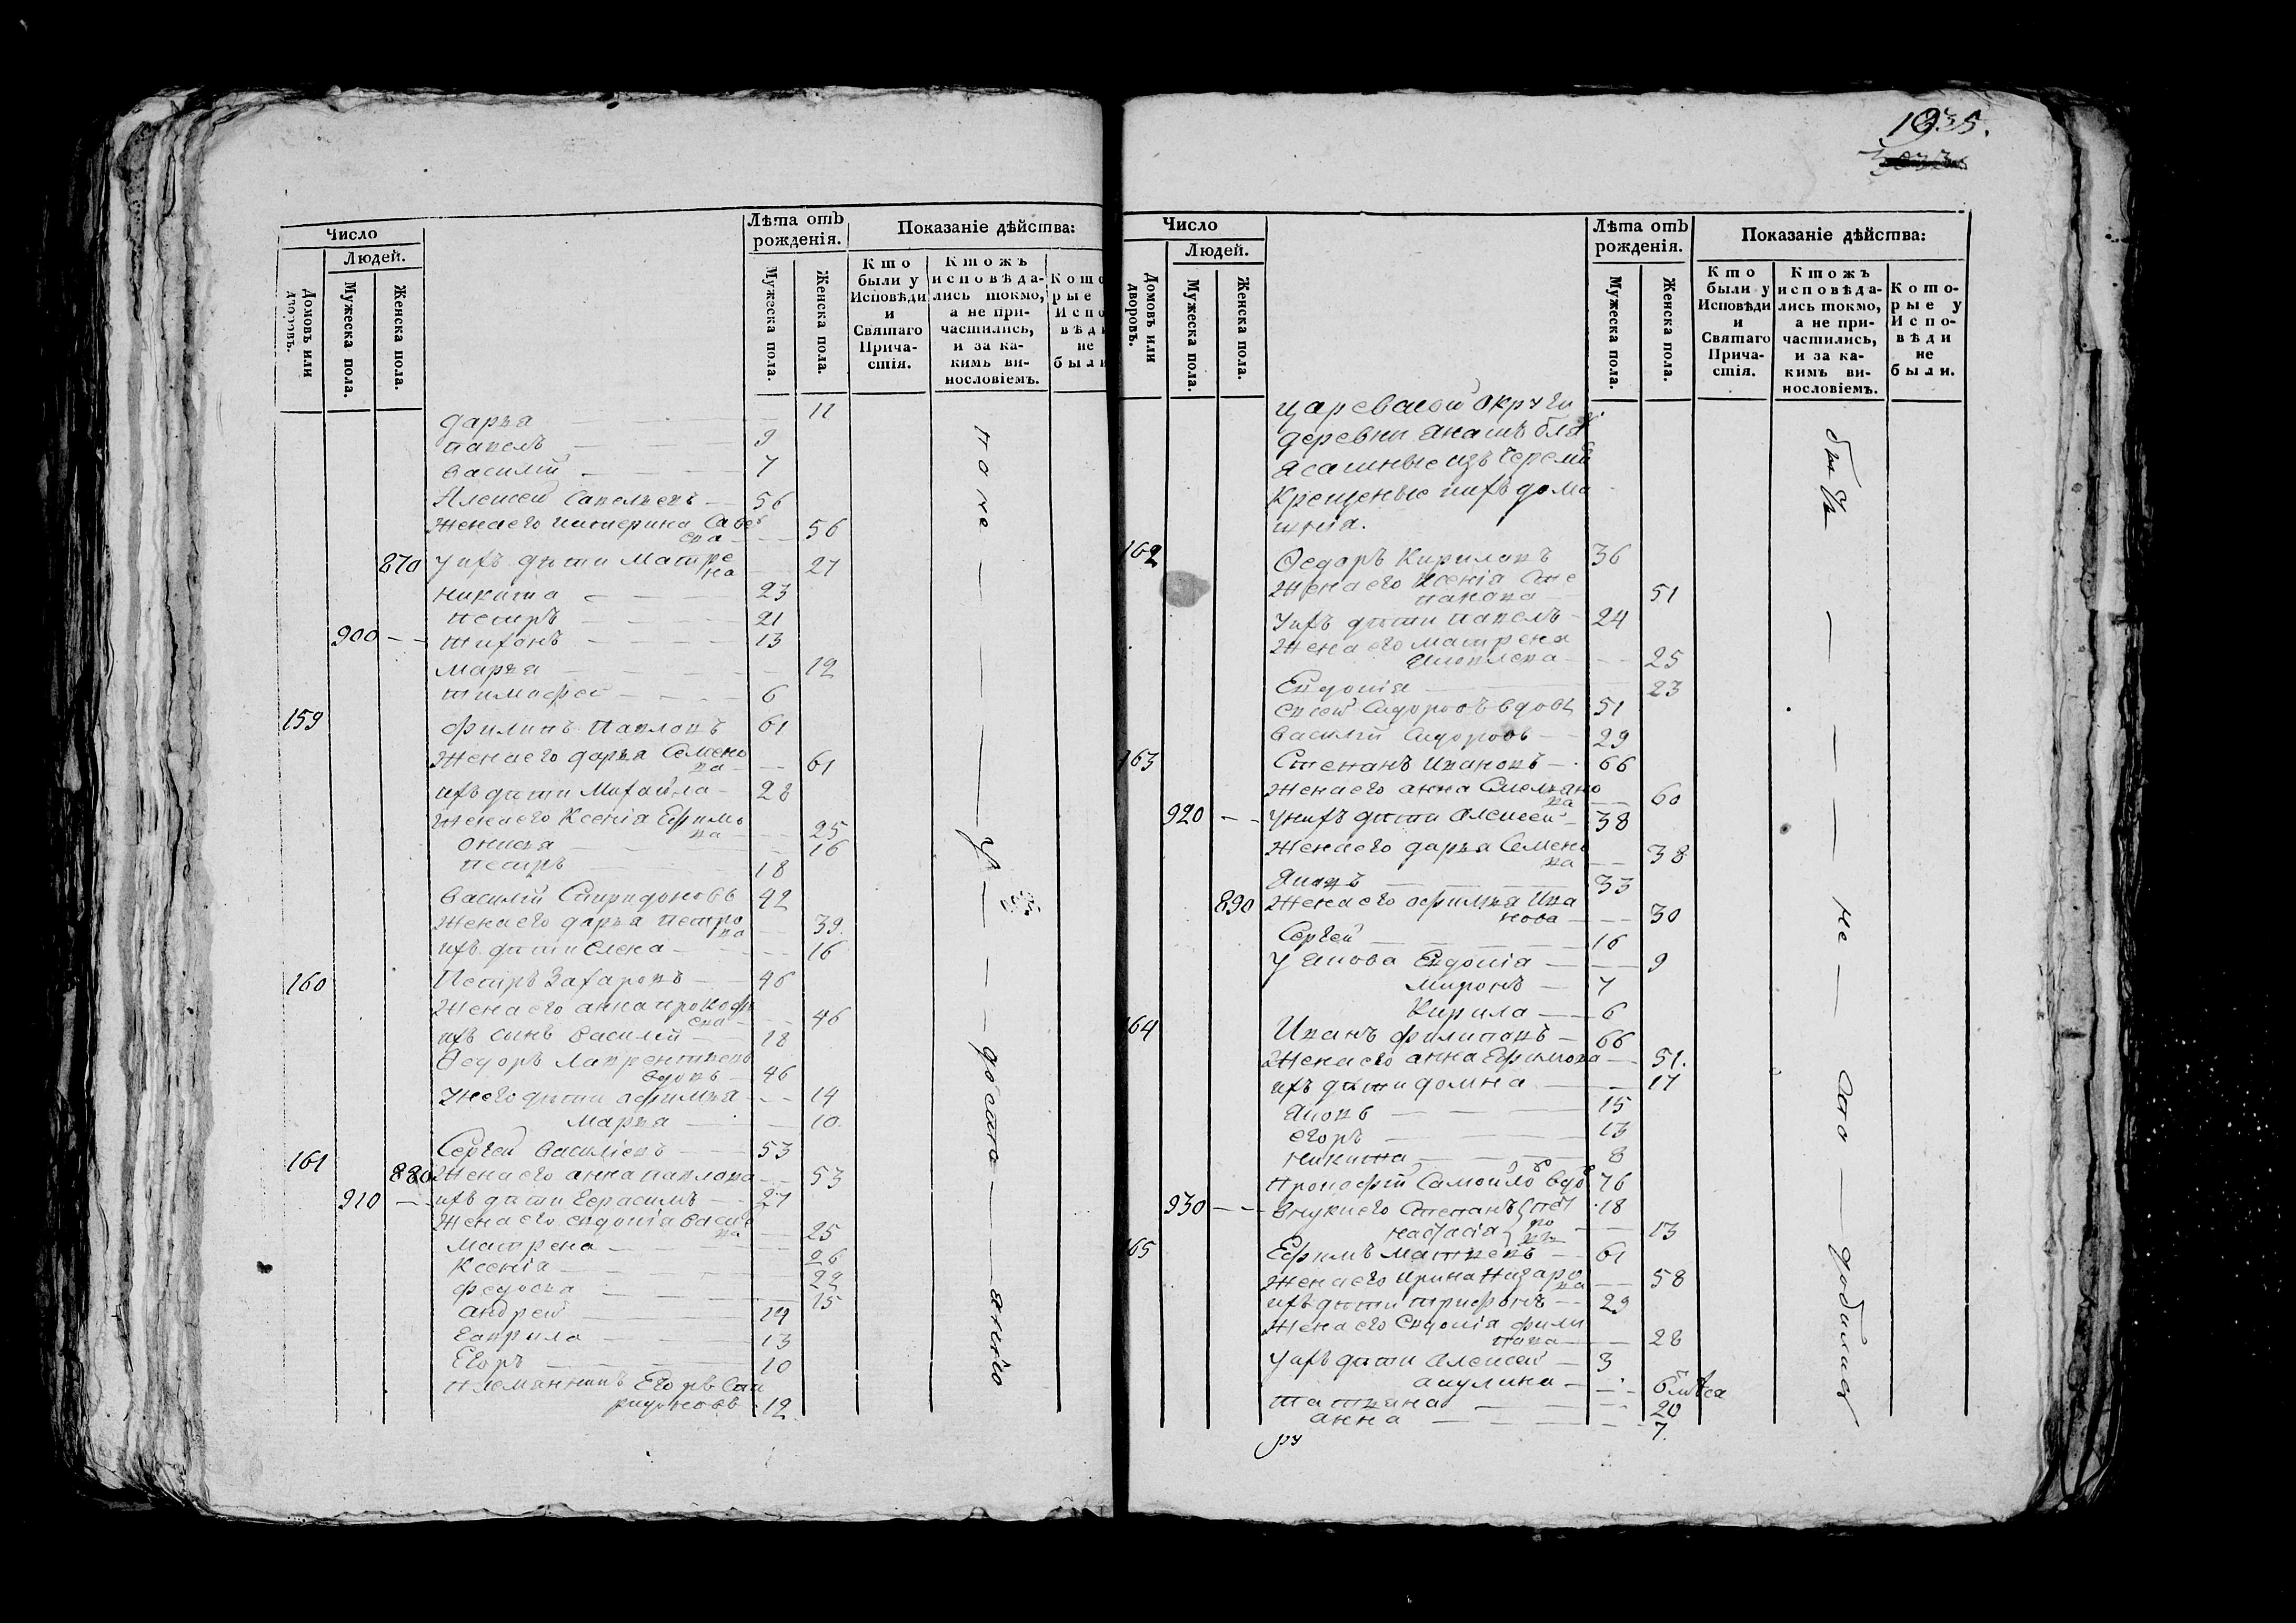 Число
Людей.
Домовъ или дворовъ.
Мужеска пола.
Женска пола.
Лѣта отъ рожденія.
Мужеска пола.
Женска пола.
Показаніе дѣйства:
Кто были у Исповѣди и Святаго Прича-стія.
Ктожъ исповѣда-лись токмо, а не при-частились, и за ка-кимъ ви-нословіемъ.
Кото рые Испо вѣди не были
дарья — 11
павелъ — 9
василій — 7
Алексей Савельевъ — 56
Жена его катерина Саве
ева — 56
870 У ихъ дѣти Матре
на — 27
никита — 23
петръ — 21
900 — тихонъ — 13
марья — 12
тимофей — 6
159 филипъ Павловъ 61
Жена его дарья Семено
ва — 61
ихъ дѣти Михайла — 28
Жена его Ксенія Ефимо
ва — 25
онисья — 16
петръ 18
василій Спиридоновъ 42
Жена его дарья петро
ва 39.
ихъ дѣти елена — 16
160 Петръ Захаровъ — 46
Жена его анна прокофь
ева — 46
ихъ сынъ василій — 18
Ѳедоръ Лаврентьевъ
вдовъ — 46
У него дѣти афимья — 14
марья — 10.
161 Сергей василіевъ — 53
880 Жена его анна павлова — 53
910 — ихъ дѣти Герасимъ — 27
Жена его евдокія васи
ва — 25
матрена — 26
Ксенія — 22
федосья — 15
андрей — 19
Гаврила — 13
Егоръ — 10
племянникъ Егоръ Спи
ридоновъ 12.
1935.
Число
Людей.
Домовъ или дворовъ.
Мужеска пола.
Женска пола.
Лѣта отъ рожденія.
Мужеска пола.
Женска пола.
Показаніе дѣйства:
Кто были у Исповѣди и Святаго Прича-стія.
Ктожъ исповѣда-лись токмо, а не при-частились, и за ка-кимъ ви-нословіемъ.
Кото-рые у Испо-вѣди не были.
царевской округи
деревни
ясашные изъ черемис
Крещеные ихъ дома
шнія.
162 Ѳедоръ Кириловъ 36
Жена его Ксенія Сте
панова 51
У ихъ дѣти павелъ — 24
Жена его матрена
Яковлева — 25
Евдокія — 23
Сидоровъ вдовъ 51
василій Сидоровъ — 29
163 Степанъ Ивановъ — 66
Жена его анна Емельяно
ва — 60
920 — У нихъ дѣти алексей — 38
Жена его дарья Семено
ва — 38
Яковъ — 33
890 Жена его афимья Ива
нова — 30
Сергей — 16
У якова Евдокія — 9
миронъ — 7
Кирила — 6
164 Иванъ филиповъ — 66
Жена его анна Ефимова — 51.
ихъ дѣти домна — 17
яковъ — 15
егоръ — 13
никита — 8
прокофій Самойло вдо 76
930 — внуки его Степанъ 18
настасія 13
165 Ефимъ матвеевъ — 61
Жена его Ирина Назаро
ва — 58
ихъ дѣти трифонъ — 29
Жена его Евдокія фили
пова — 28
У ихъ дѣти алексей — 3
акулина — 6 мѣся
татьяна — 20
анна — 7.